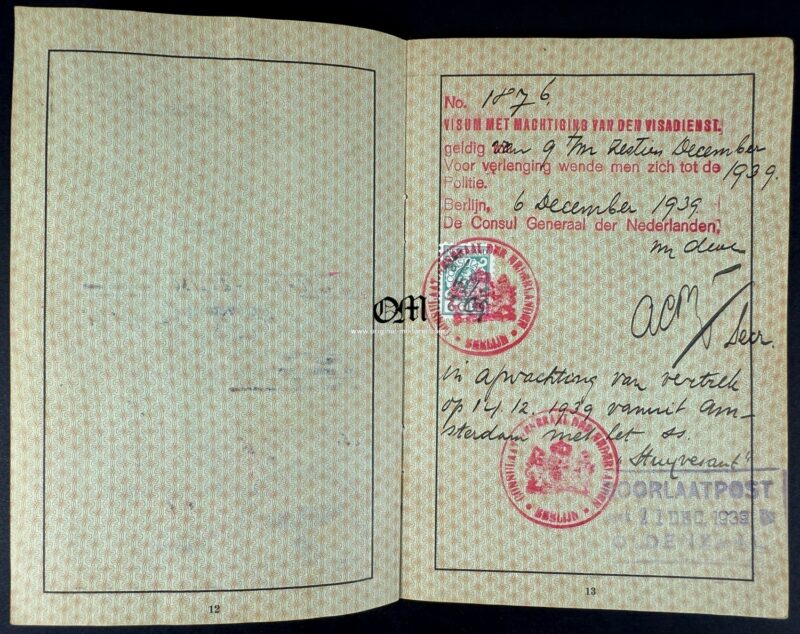 No. 1876.
VISUM MET MACHTIGING VAN DEN VISADIENST.
geldig van 9 t/m zestien December
Voor verlenging wende men zich tot de 1939.
Politie.
Berlijn, 6 December 1939
De Consul Generaal der Nederlanden,
CONSULAAT GENERAAL DER NEDERLANDEN
BERLIJN
OM
www.original-militaria.com
Secr.
in afwachting van vertrek
op 14.12.1939 vanuit Am-
sterdam met het ss.
"Stuyvesant"
CONSULAAT GENERAAL DER NEDERLANDEN
BERLIJN
DOORLAATPOST
11 DEC. 1939
OLDENZAAL
12
13